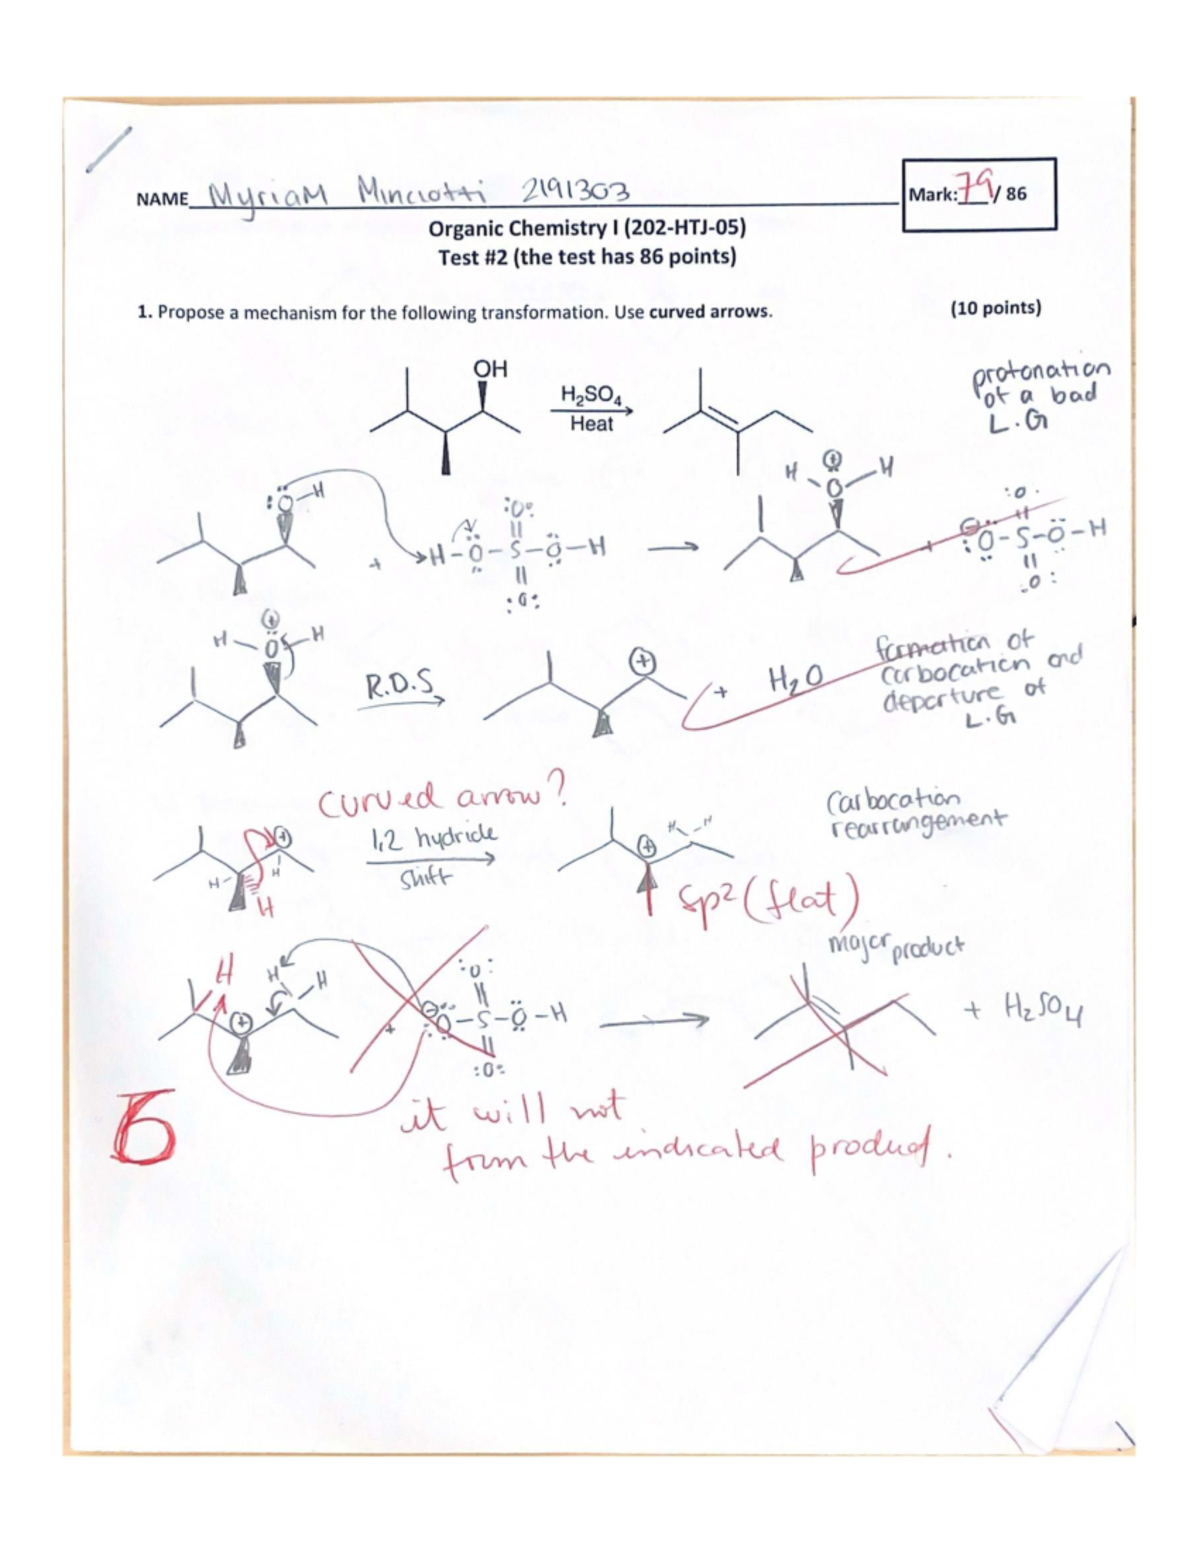 NAME Myriam Minciotti 2191303
Mark: 79 / 86
Organic Chemistry I (202-HTJ-05)
Test #2 (the test has 86 points)
1. Propose a mechanism for the following transformation. Use curved arrows. (10 points)
OH
H₂SO₄
Heat
protonation
of a bad
L.G
H O H
:Ö-H
:O:
+ H-O-S-O-H
:O:
+ :O-S-O-H
:O:
H-O-H
R.D.S
+ H₂O
formation of
carbocation and
departure of
L.G
curved arrow?
1,2 hydride
shift
H H
H
H H
Carbocation
rearrangement
sp² (flat)
major product
H H H
:O:
+ :O-S-O-H
:O:
+ H₂SO₄
6
it will not
form the indicated product.